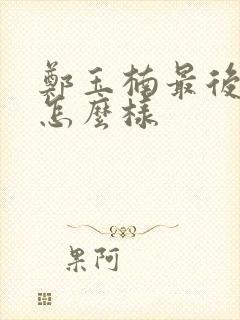 鄭玉楠最後
怎麼樣
果阿